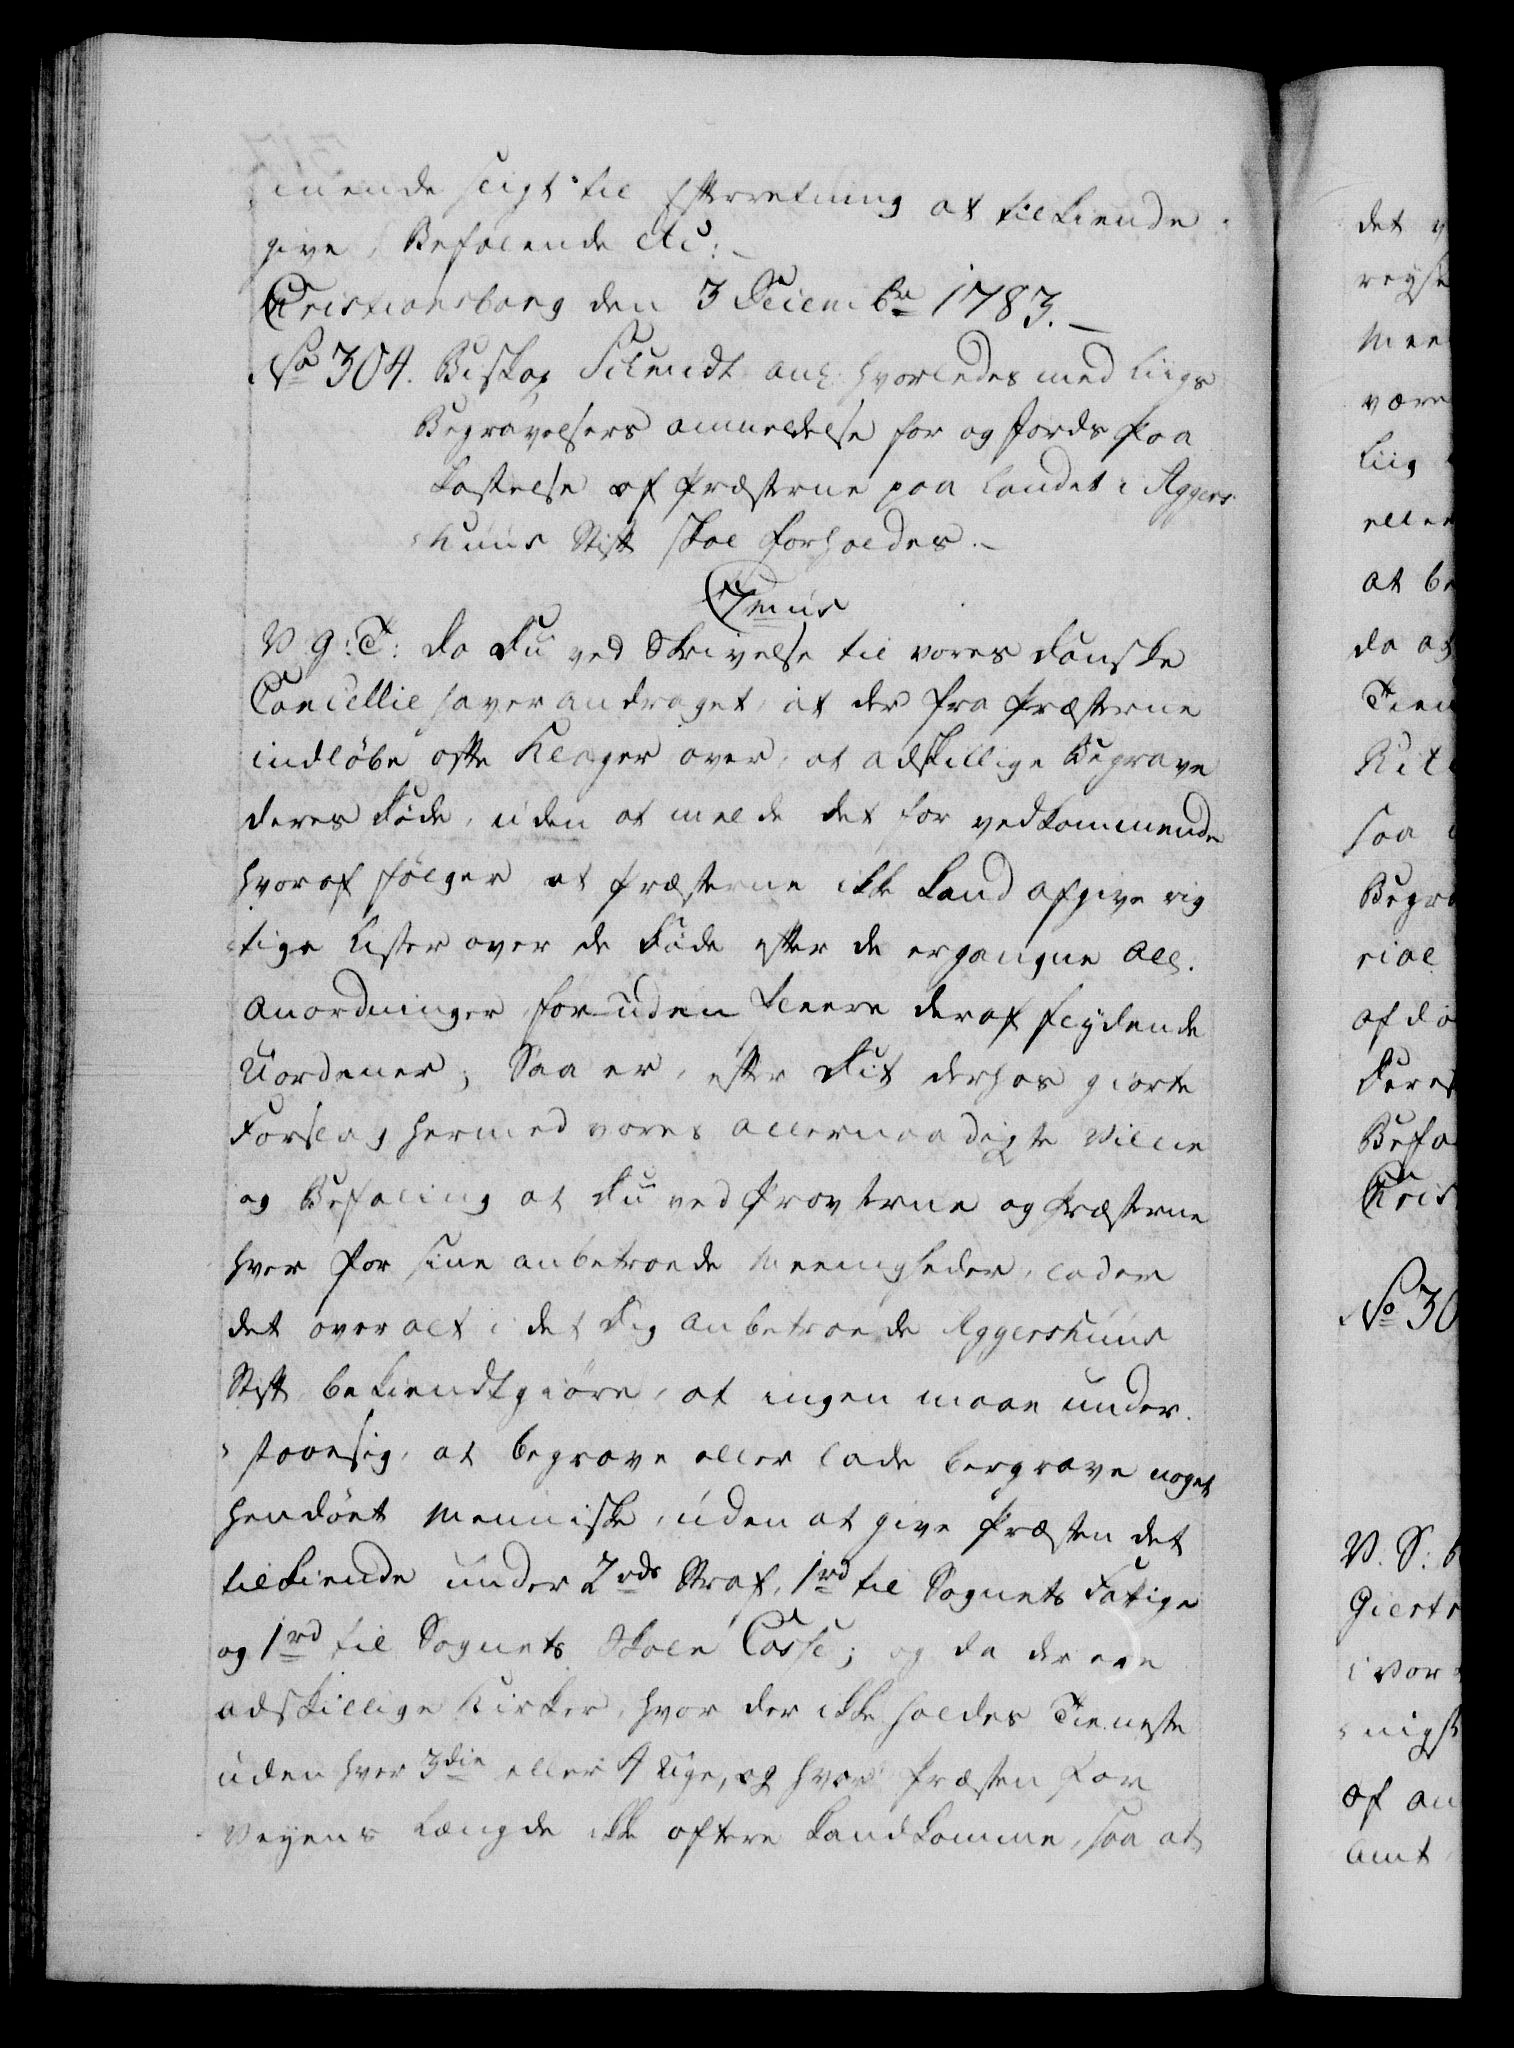 mende sligt til Efterretning at tilkiende
give, Befalende etc:
Christiansborg den 3 Decembr 1783.
No 304. Biskop Schmidt anl: hvorledes med Liigs
Begravelsers anmeldelse for og Jords Paa
kastelse af Præsterne paa Landet i Aggers
huus Stift skal forholdes.
Cmus
V G: T: Da Du ved Skrivelse til vores danske
Cancellie haver andraget, at der fra Præsterne
indløbe ofte Klager over, at adskillige Begrave
deres Døde, uden at melde det for vedkommende
hvoraf følger, at Præsterne ikke kand afgive rig
tige Lister over de Døde efter de ergangne All.
Anordninger foruden fleere deraf flydende
Uordener; Saa er, efter Dit derhos giorte
Forslag hermed vores allernaadigste Villie
og Befaling at Du ved Provsterne og Præsterne
hver for sine anbetroede Meenigheder, lader
det overalt i det Dig anbetroede Aggershuus
Stift bekiendtgiöre, at ingen maae under
staae sig, at begrave eller lade bergrave noget
hendöet Menniske, uden at give Præsten det
tilkiende under 2 rds Straf, 1 rd til Sognets Fattige
og 1 rd til Sognets Skole Casse; og da der ere
adskillige Kirker, hvor der ikke holdes Tieneste
uden hver 3die eller 4 Uge, og hvor Præsten for
Veyens Længde ikke oftere kand komme, saa at
det
Meen
være
Liig
eller
at be
da at
Tien
saa
Begra
rial
af dø
Deres
Befa
Chris
No 30
V. S:
i vor
af an
Amt